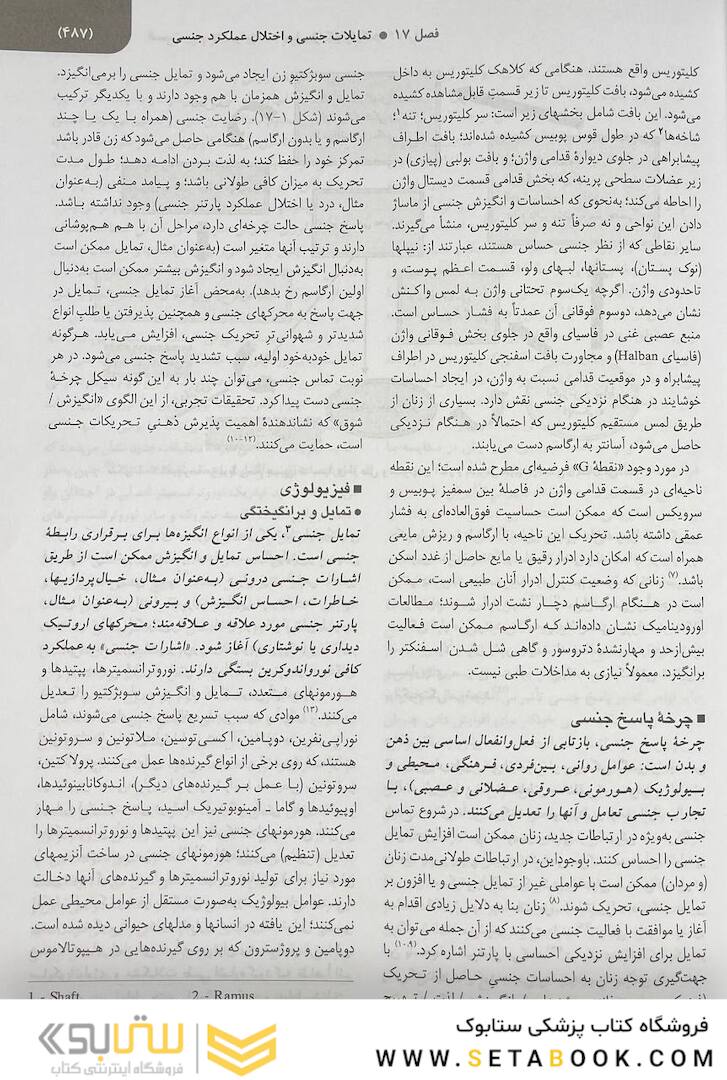 فصل ۱۷ ● تمایلات جنسی و اختلال عملکرد جنسی
(۴۸۷)
کلیتوریس واقع هستند. هنگامی که کلاهک کلیتوریس به داخل
کشیده می‌شود، بافت کلیتوریس تا زیر قسمتِ قابل‌مشاهده کشیده
می‌شود. این بافت شامل بخشهای زیر است: سر کلیتوریس؛ تنه۱؛
شاخه‌ها۲ که در طول قوس پوبیس کشیده شده‌اند؛ بافت اطراف
پیشابراهی در جلوی دیوارهٔ قدامی واژن؛ و بافت بولبی (پیازی) در
زیر عضلات سطحی پرینه، که بخش قدامی قسمت دیستال واژن
را احاطه می‌کند؛ به‌نحوی که احساسات و انگیزش جنسی از ماساژ
دادن این نواحی و نه صرفاً تنه و سر کلیتوریس، منشأ می‌گیرند.
سایر نقاطی که از نظر جنسی حساس هستند، عبارتند از: نیپلها
(نوک پستان)، پستانها، لبهای ولو، قسمت اعظم پوست، و
تاحدودی واژن. اگرچه یک‌سوم تحتانی واژن به لمس واکنش
نشان می‌دهد، دوسوم فوقانی آن عمدتاً به فشار حساس است.
منبع عصبی غنی در فاسیای واقع در جلوی بخش فوقانی واژن
(فاسیای Halban) و مجاورت بافت اسفنجی کلیتوریس در اطراف
پیشابراه و در موقعیت قدامی نسبت به واژن، در ایجاد احساسات
خوشایند در هنگام نزدیکی جنسی نقش دارد. بسیاری از زنان از
طریق لمس مستقیم کلیتوریس که احتمالاً در هنگام نزدیکی
حاصل می‌شود، آسانتر به ارگاسم دست می‌یابند.
در مورد وجود «نقطهٔ G» فرضیه‌ای مطرح شده است؛ این نقطه
ناحیه‌ای در قسمت قدامی واژن در فاصلهٔ بین سمفیز پوبیس و
سرویکس است که ممکن است حساسیت فوق‌العاده‌ای به فشار
عمقی داشته باشد. تحریک این ناحیه، با ارگاسم و ریزش مایعی
همراه است که امکان دارد ادرار رقیق یا مایع حاصل از غدد اسکن
باشد.(۷) زنانی که وضعیت کنترل ادرار آنان طبیعی است، ممکن
است در هنگام ارگاسم دچار نشت ادرار شوند؛ مطالعات
اورودینامیک نشان داده‌اند که ارگاسم ممکن است فعالیت
بیش‌ازحد و مهارنشدهٔ دتروسور و گاهی شل شدن اسفنکتر را
برانگیزد. معمولاً نیازی به مداخلات طبی نیست.
■ چرخهٔ پاسخ جنسی
چرخهٔ پاسخ جنسی، بازتابی از فعل‌وانفعال اساسی بین ذهن
و بدن است: عوامل روانی، بین‌فردی، فرهنگی، محیطی و
بیولوژیک (هورمونی، عروقی، عضلانی و عصبی)، با
تجارب جنسی تعامل و آنها را تعدیل می‌کنند. در شروع تماس
جنسی به‌ویژه در ارتباطات جدید، زنان ممکن است افزایش تمایل
جنسی را احساس کنند. باوجوداین، در ارتباطات طولانی‌مدت زنان
(و مردان) ممکن است با عواملی غیر از تمایل جنسی و یا افزون بر
تمایل جنسی، تحریک شوند.(۸) زنان بنا به دلایل زیادی اقدام به
آغاز یا موافقت با فعالیت جنسی می‌کنند که از آن جمله می‌توان به
تمایل برای افزایش نزدیکی احساسی با پارتنر اشاره کرد.(۱۰-۹) با
جهت‌گیری توجه زنان به احساسات جنسی حاصل از تحریک
جنسی سوبژکتیوِ زن ایجاد می‌شود و تمایل جنسی را برمی‌انگیزد.
تمایل و انگیزش همزمان با هم وجود دارند و با یکدیگر ترکیب
می‌شوند (شکل ۱-۱۷). رضایت جنسی (همراه با یک یا چند
ارگاسم و یا بدون ارگاسم) هنگامی حاصل می‌شود که زن قادر باشد
تمرکز خود را حفظ کند؛ به لذت بردن ادامه دهد؛ طول مدت
تحریک به میزان کافی طولانی باشد؛ و پیامد منفی (به‌عنوان
مثال، درد یا اختلال عملکرد پارتنر جنسی) وجود نداشته باشد.
پاسخ جنسی حالت چرخه‌ای دارد، مراحل آن با هم هم‌پوشانی
دارند و ترتیب آنها متغیر است (به‌عنوان مثال، تمایل ممکن است
به‌دنبال انگیزش ایجاد شود و انگیزش بیشتر ممکن است به‌دنبال
اولین ارگاسم رخ بدهد). به‌محض آغاز تمایل جنسی، تمایل در
جهت پاسخ به محرکهای جنسی و همچنین پذیرفتن یا طلبِ انواع
شدیدتر و شهوانی‌ترِ تحریک جنسی، افزایش می‌یابد. هرگونه
تمایل خودبه‌خود اولیه، سبب تشدید پاسخ جنسی می‌شود. در هر
نوبت تماس جنسی، می‌توان چند بار به این گونه سیکل چرخهٔ
جنسی دست پیدا کرد. تحقیقات تجربی، از این الگوی «انگیزش /
شوق» که نشاندهندهٔ اهمیت پذیرش ذهنیِ تحریکات جنسی
است، حمایت می‌کنند.(۱۲-۱۰)
■ فیزیولوژی
● تمایل و برانگیختگی
تمایل جنسی۳، یکی از انواع انگیزه‌ها برای برقراری رابطهٔ
جنسی است. احساس تمایل و انگیزش ممکن است از طریق
اشارات جنسی درونی (به‌عنوان مثال، خیال‌پردازیها،
خاطرات، احساس انگیزش) و بیرونی (به‌عنوان مثال،
پارتنر جنسی مورد علاقه و علاقه‌مند؛ محرکهای اروتیک
دیداری یا نوشتاری) آغاز شود. «اشارات جنسی» به عملکرد
کافی نورواندوکرین بستگی دارند. نوروترانسمیترها، پپتیدها و
هورمونهای متعدد، تمایل و انگیزش سوبژکتیو را تعدیل
می‌کنند.(۱۳) موادی که سبب تسریع پاسخ جنسی می‌شوند، شامل
نوراپی‌نفرین، دوپامین، اکسی‌توسین، ملانوتین و سروتونین
هستند، که روی برخی از انواع گیرنده‌ها عمل می‌کنند. پرولاکتین،
سروتونین (با عمل بر گیرنده‌های دیگر)، اندوکانابینوئیدها،
اوپیوئیدها و گاما - آمینوبوتیریک اسید، پاسخ جنسی را مهار
می‌کنند. هورمونهای جنسی نیز این پپتیدها و نوروترانسمیترها را
تعدیل (تنظیم) می‌کنند؛ هورمونهای جنسی در ساخت آنزیمهای
مورد نیاز برای تولید نوروترانسمیترها و گیرنده‌های آنها دخالت
دارند. عوامل بیولوژیک به‌صورت مستقل از عوامل محیطی عمل
نمی‌کنند؛ این یافته در انسانها و مدلهای حیوانی دیده شده است.
دوپامین و پروژسترون که بر روی گیرنده‌هایی در هیپوتالاموس
1 - Shaft 2 - Ramus
فروشگاه کتاب پزشکی ستابوک
WWW.SETABOOK.COM
ستابوک
فروشگاه اینترنتی کتاب